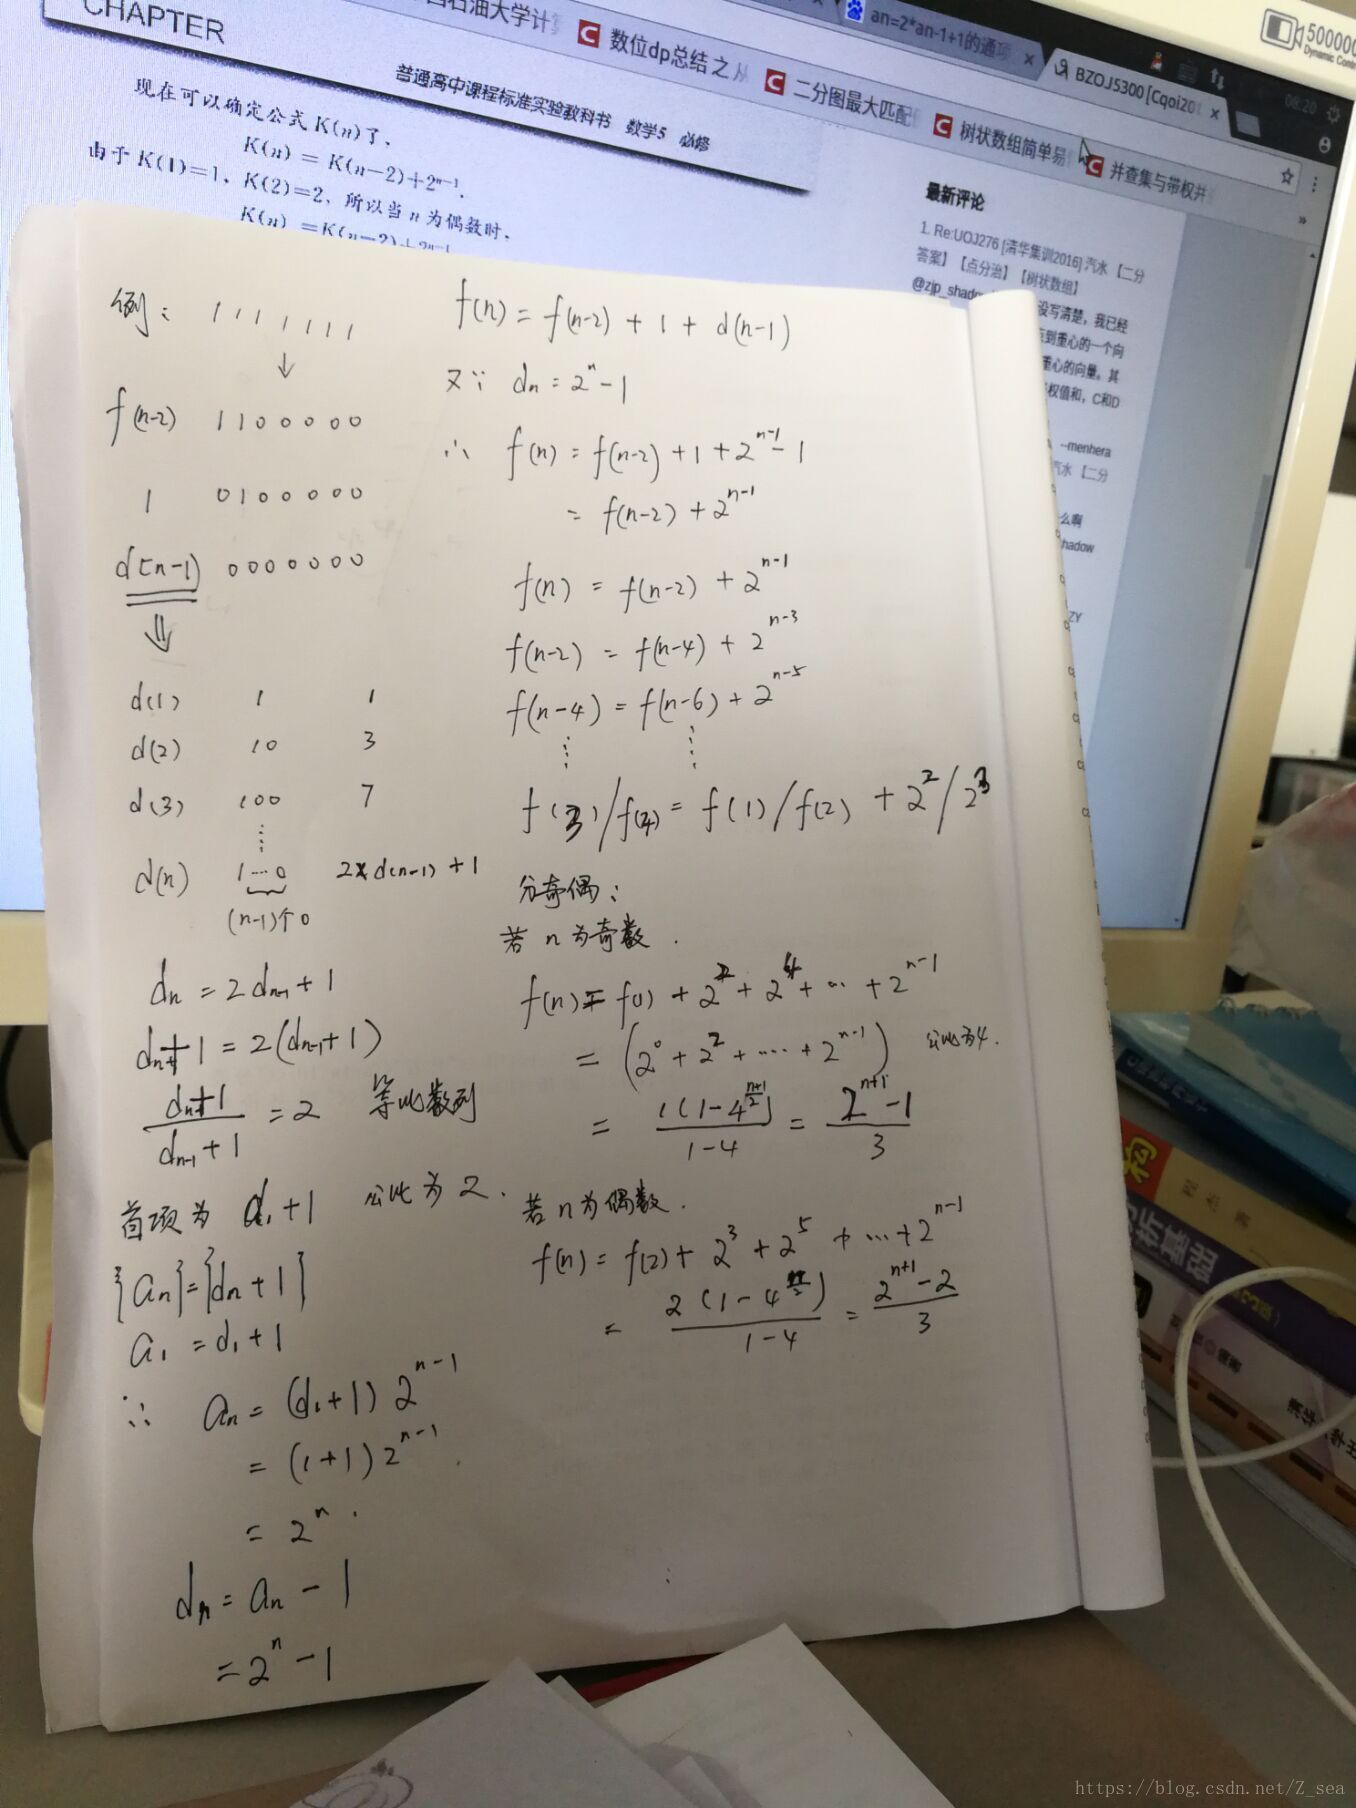 CHAPTER
普通高中课程标准实验教科书 数学5 必修
现在可以确定公式K(n)了,
K(n) = K(n-2)+2^{n-1}.
由于K(1)=1, K(2)=2, 所以当n为偶数时,
K(n) =K(n-2)+2^{n-1}
数位dp总结 之 从
二分图最大匹配
树状数组简单易
并查集与带权并
an=2*an-1+1的通项
BZOJ5300 [Cqoi201
08:20
500000
Dynamic Contr
最新评论
1. Re:UOJ276 [清华集训2016] 汽水 【二分
答案】【点分治】【树状数组】
@zjp_shado
没写清楚, 我已经
到重心的一个向
重心的向量。其
权值和, C和D
--menhera
汽水 【二分
么啊
hadow
ZY
例: 1 1 1 1 1 1 1
↓
f(n-2) 1 1 0 0 0 0 0
1 0 1 0 0 0 0 0
d[n-1) 0 0 0 0 0 0 0
⇓
d(1) 1 1
d(2) 10 3
d(3) 100 7
⋮
d(n) 1…0 2×d(n-1)+1
(n-1)个0
dn = 2dn-1+1
dn+1 = 2(dn-1+1)
dn+1 / dn-1+1 = 2 等比数列
首项为 d1+1 公比为 2.
{an}={dn+1}
a1 = d1+1
∴ an = (d1+1) 2^{n-1}
= (1+1) 2^{n-1}
= 2^n.
dn = an - 1
= 2^n - 1
f(n) = f(n-2) + 1 + d(n-1)
又∵ dn = 2^n - 1
∴ f(n) = f(n-2) + 1 + 2^{n-1} - 1
= f(n-2) + 2^{n-1}
f(n) = f(n-2) + 2^{n-1}
f(n-2) = f(n-4) + 2^{n-3}
f(n-4) = f(n-6) + 2^{n-5}
⋮ ⋮
f(3)/f(4) = f(1)/f(2) + 2^2/2^3
分奇偶:
若 n 为奇数.
f(n) = f(1) + 2^2 + 2^4 + … + 2^{n-1}
= (2^0 + 2^2 + … + 2^{n-1}) 公比为4.
= 1(1-4^{(n+1)/2}) / 1-4 = 2^{n+1}-1 / 3
若 n 为偶数.
f(n) = f(2) + 2^3 + 2^5 + … + 2^{n-1}
= 2(1-4^{n/2}) / 1-4 = 2^{n+1}-2 / 3
析基础
https://blog.csdn.net/Z_sea